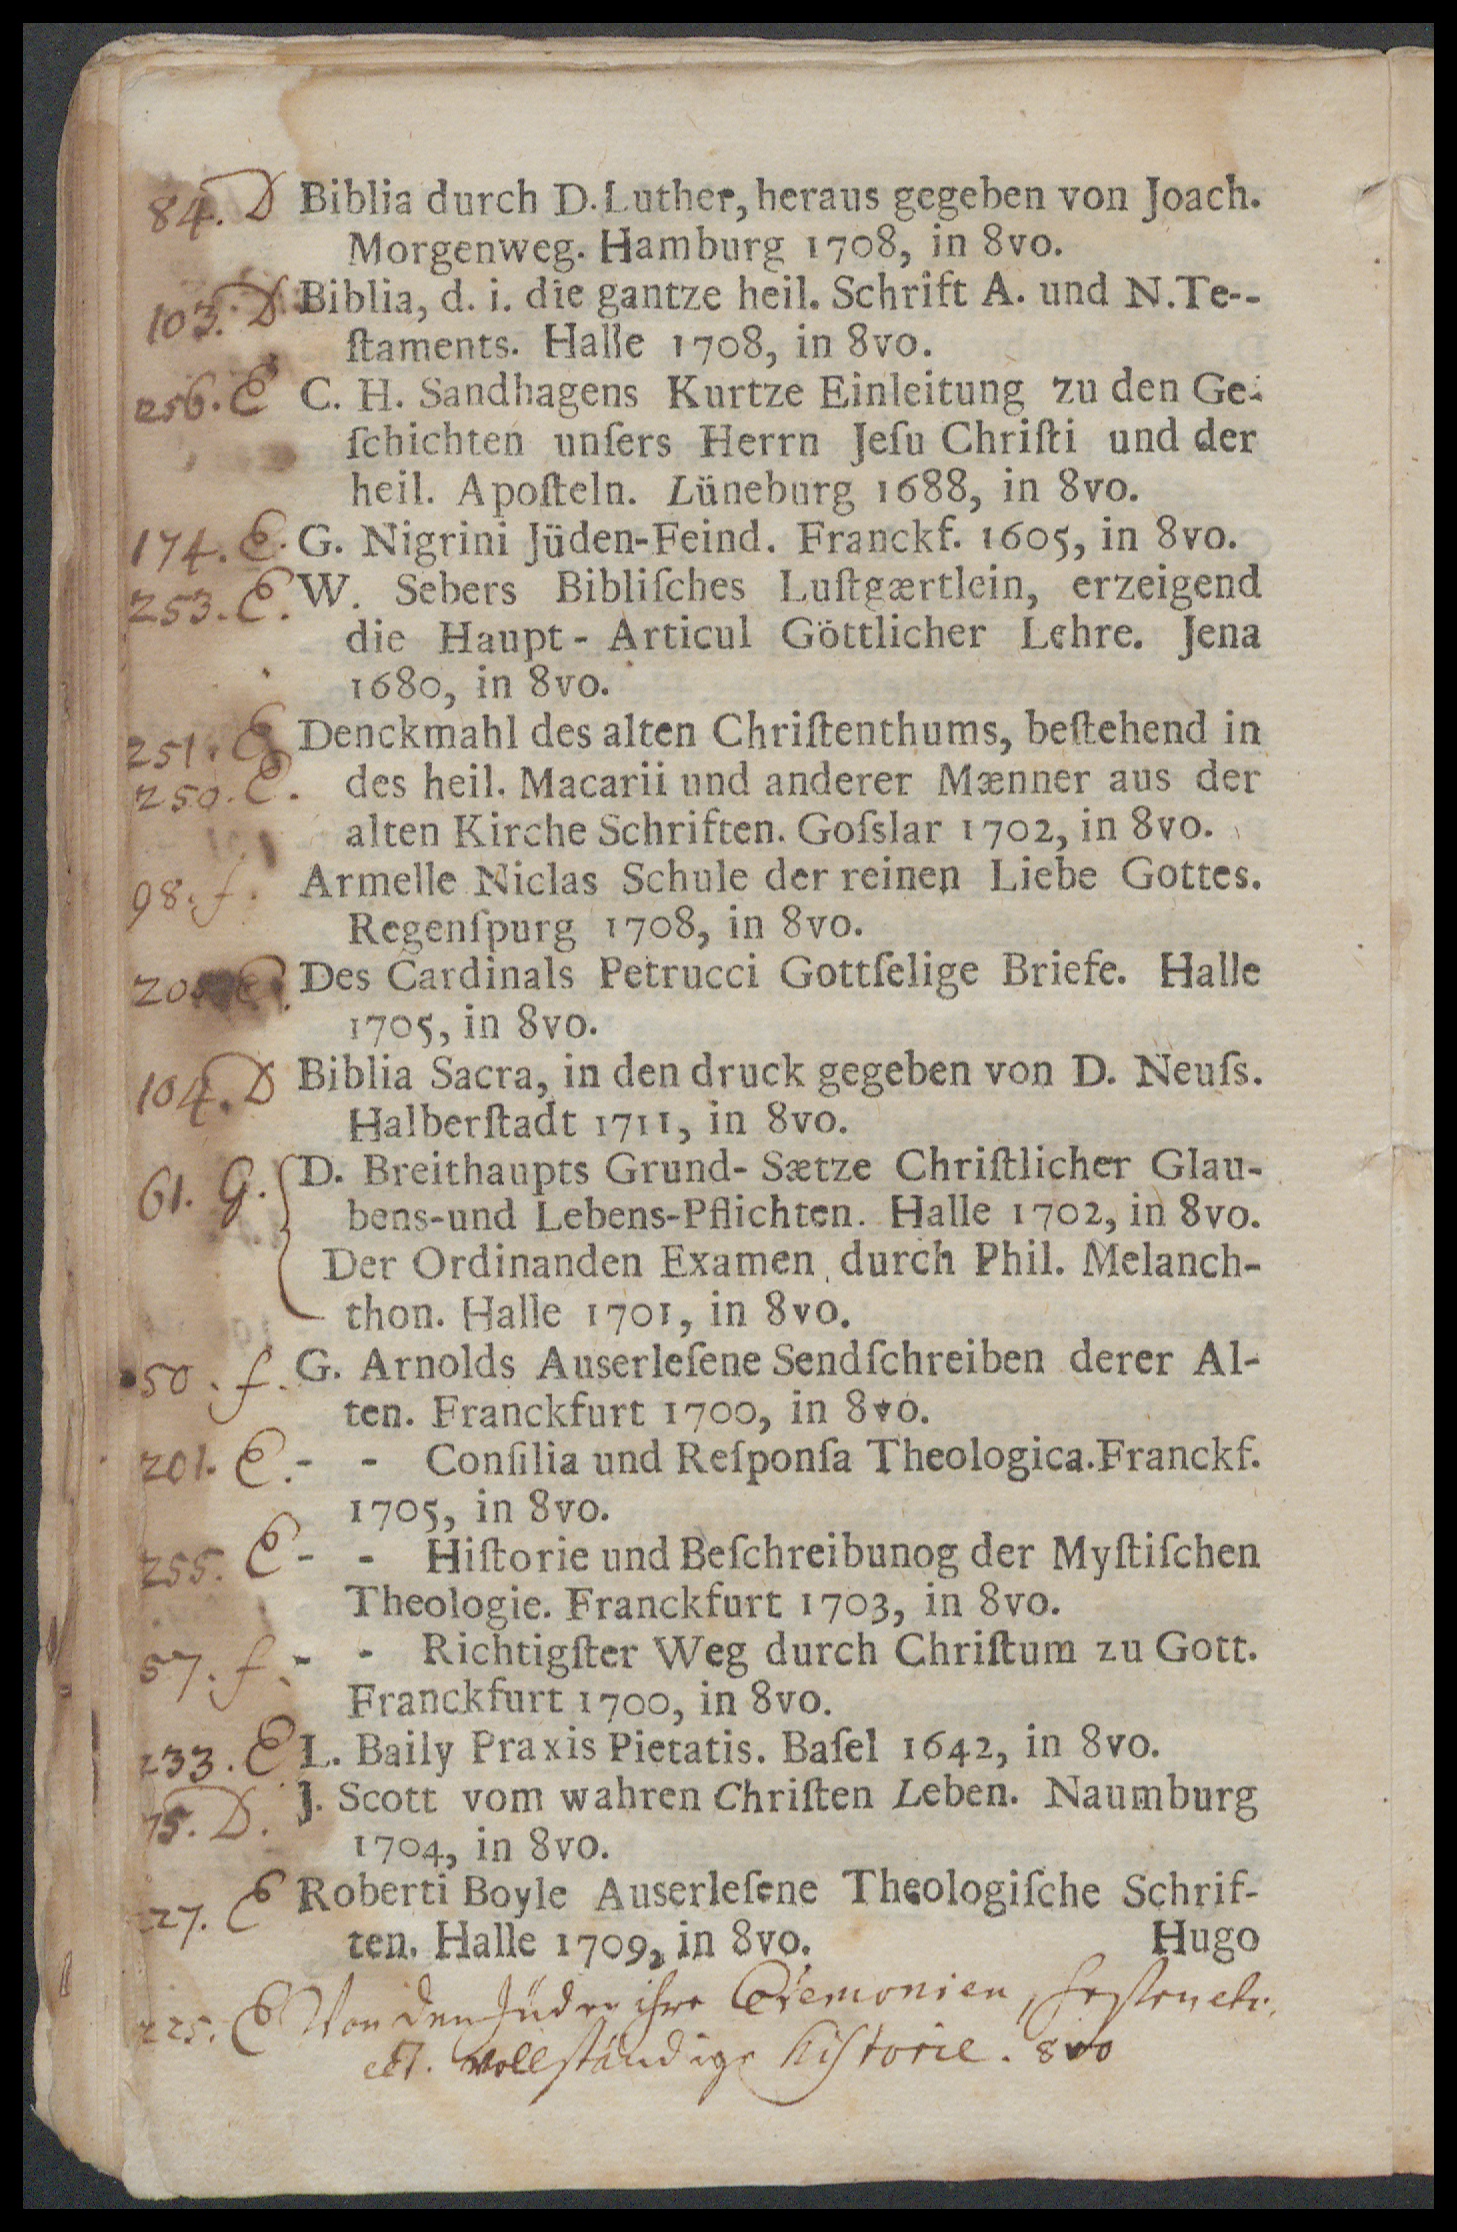 84. D Biblia durch D. Luther, heraus gegeben von Joach.
Morgenweg. Hamburg 1708, in 8vo.
103. D Biblia, d. i. die gantze heil. Schrift A. und N. Te--
ſtaments. Halle 1708, in 8vo.
256. E C. H. Sandhagens Kurtze Einleitung zu den Ge-
ſchichten unſers Herrn Jeſu Chriſti und der
heil. Apoſteln. Lüneburg 1688, in 8vo.
174. E. G. Nigrini Jüden-Feind. Franckf. 1605, in 8vo.
253. E. W. Sebers Bibliſches Luſtgærtlein, erzeigend
die Haupt - Articul Göttlicher Lehre. Jena
1680, in 8vo.
251. E Denckmahl des alten Chriſtenthums, beſtehend in
250. E. des heil. Macarii und anderer Mænner aus der
alten Kirche Schriften. Goſslar 1702, in 8vo.
98. f. Armelle Niclas Schule der reinen Liebe Gottes.
Regenſpurg 1708, in 8vo.
E. Des Cardinals Petrucci Gottſelige Briefe. Halle
1705, in 8vo.
104. D Biblia Sacra, in den druck gegeben von D. Neuſs.
Halberſtadt 1711, in 8vo.
61. G. D. Breithaupts Grund- Sætze Chriſtlicher Glau-
bens-und Lebens-Pflichten. Halle 1702, in 8vo.
Der Ordinanden Examen durch Phil. Melanch-
thon. Halle 1701, in 8vo.
50. f. G. Arnolds Auserleſene Sendſchreiben derer Al-
ten. Franckfurt 1700, in 8vo.
201. E. - - Conſilia und Reſponſa Theologica. Franckf.
1705, in 8vo.
255. E - - Hiſtorie und Beſchreibunog der Myſtiſchen
Theologie. Franckfurt 1703, in 8vo.
57. f. - - Richtigſter Weg durch Chriſtum zu Gott.
Franckfurt 1700, in 8vo.
233. E L. Baily Praxis Pietatis. Baſel 1642, in 8vo.
75. D. J. Scott vom wahren Chriſten Leben. Naumburg
1704, in 8vo.
227. E Roberti Boyle Auserleſene Theologiſche Schrif-
ten. Halle 1709, in 8vo. Hugo
225. E Von den Jüden ihre Ceremonien,
vollständige Historie. 8vo